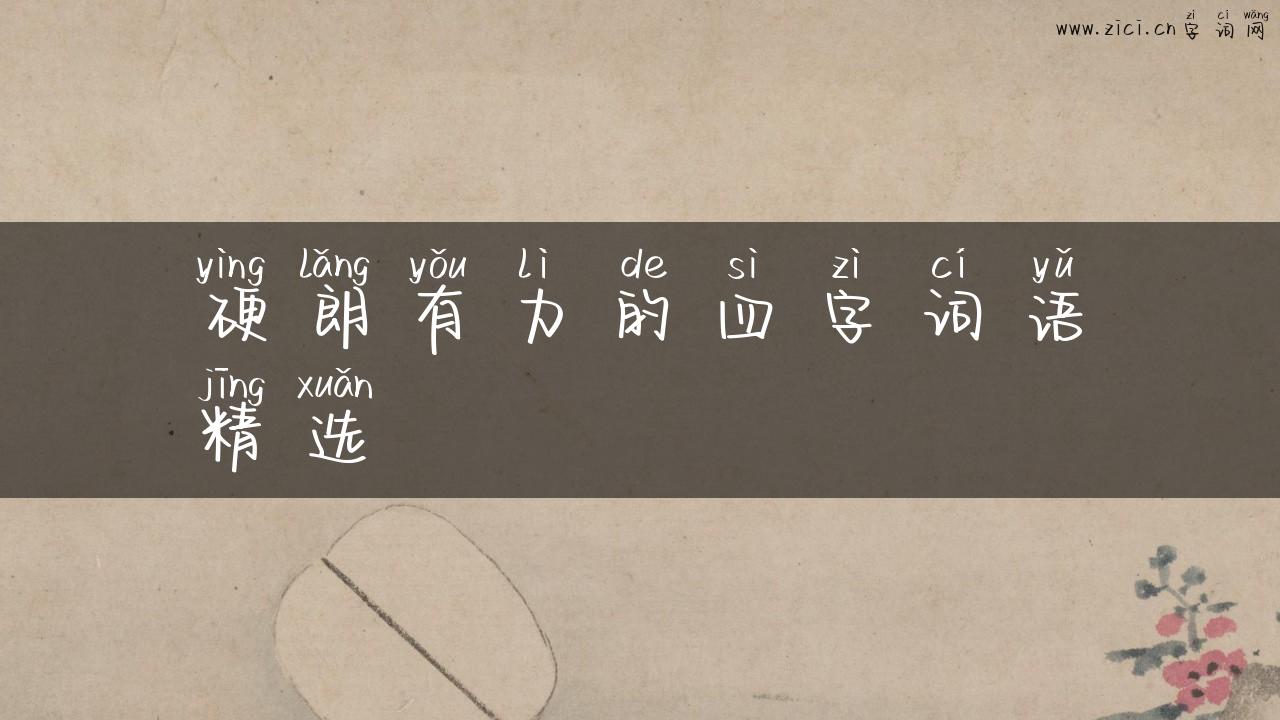 zì cí wǎng
www.zici.cn 字词网
yìng lǎng yǒu lì de sì zì cí yǔ
硬朗有力的四字词语
jīng xuǎn
精选